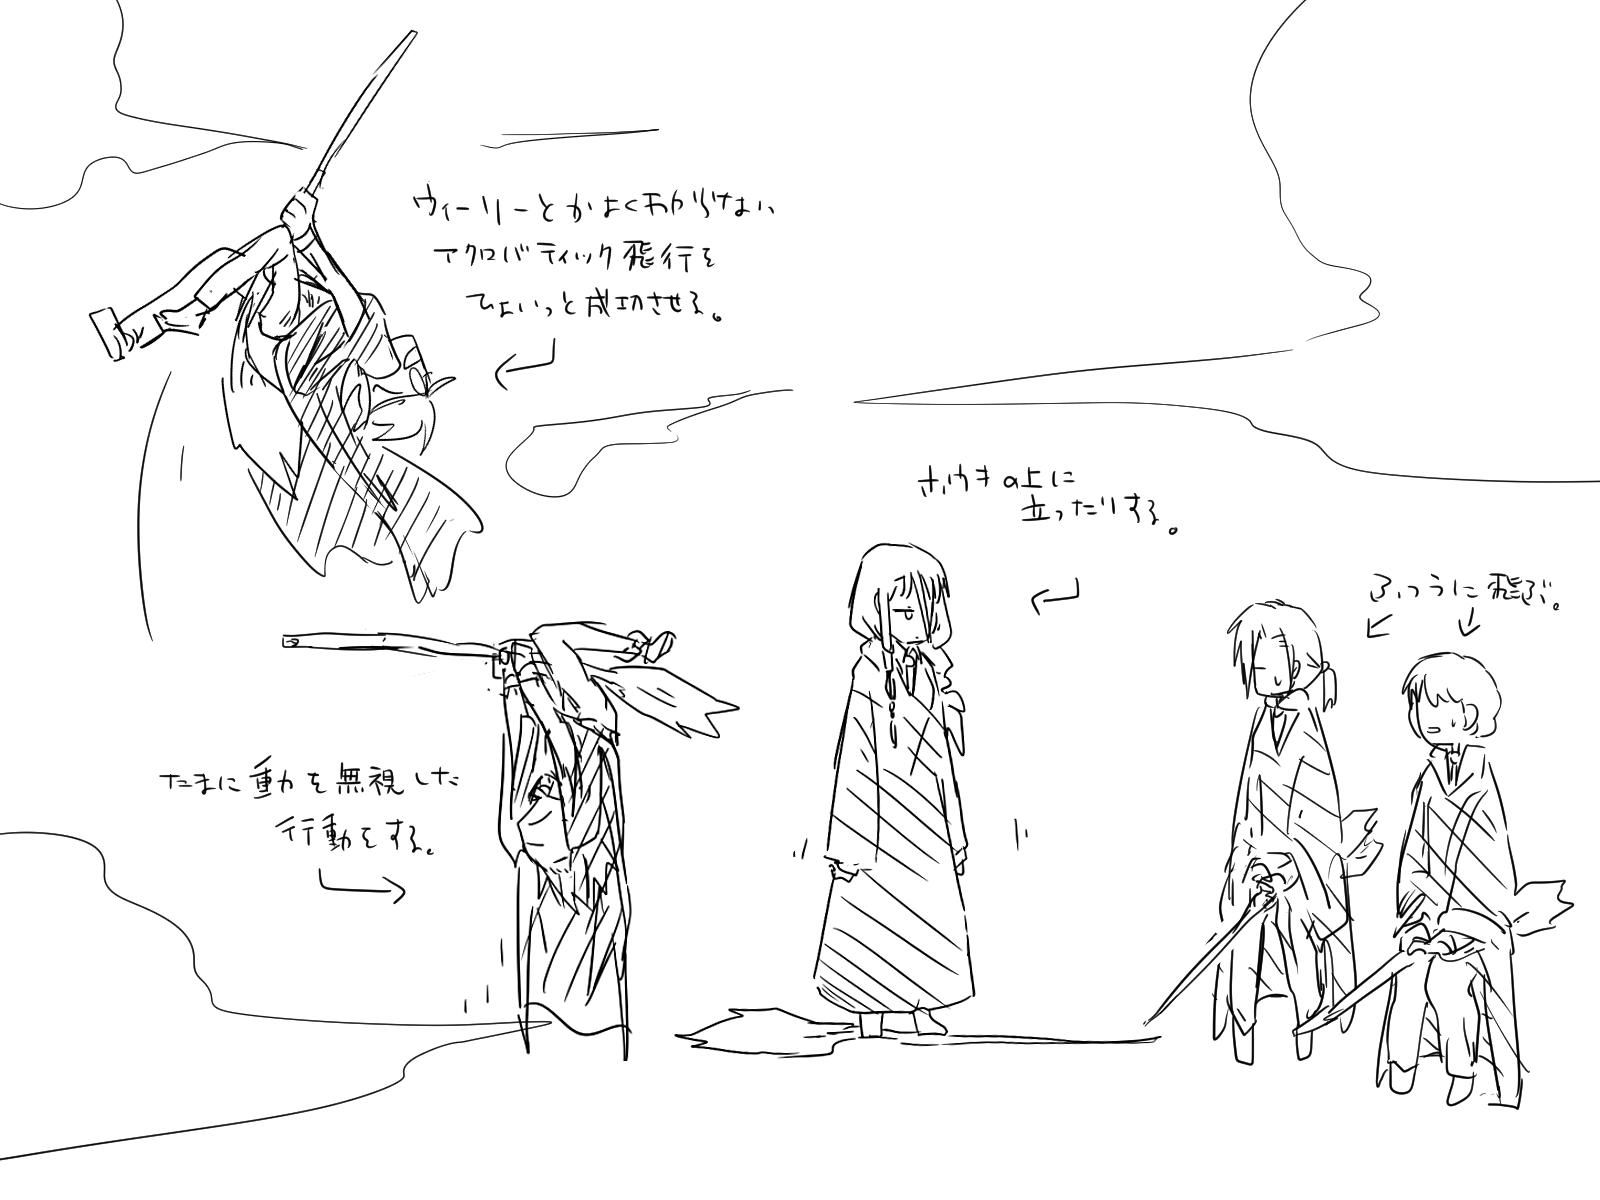 ウィーリーとかよくわからない
アクロバティック飛行を
ひょいっと成功させる。
ほうきの上に
立ったりする。
ふつうに飛ぶ。
たまに重力を無視した
行動をする。